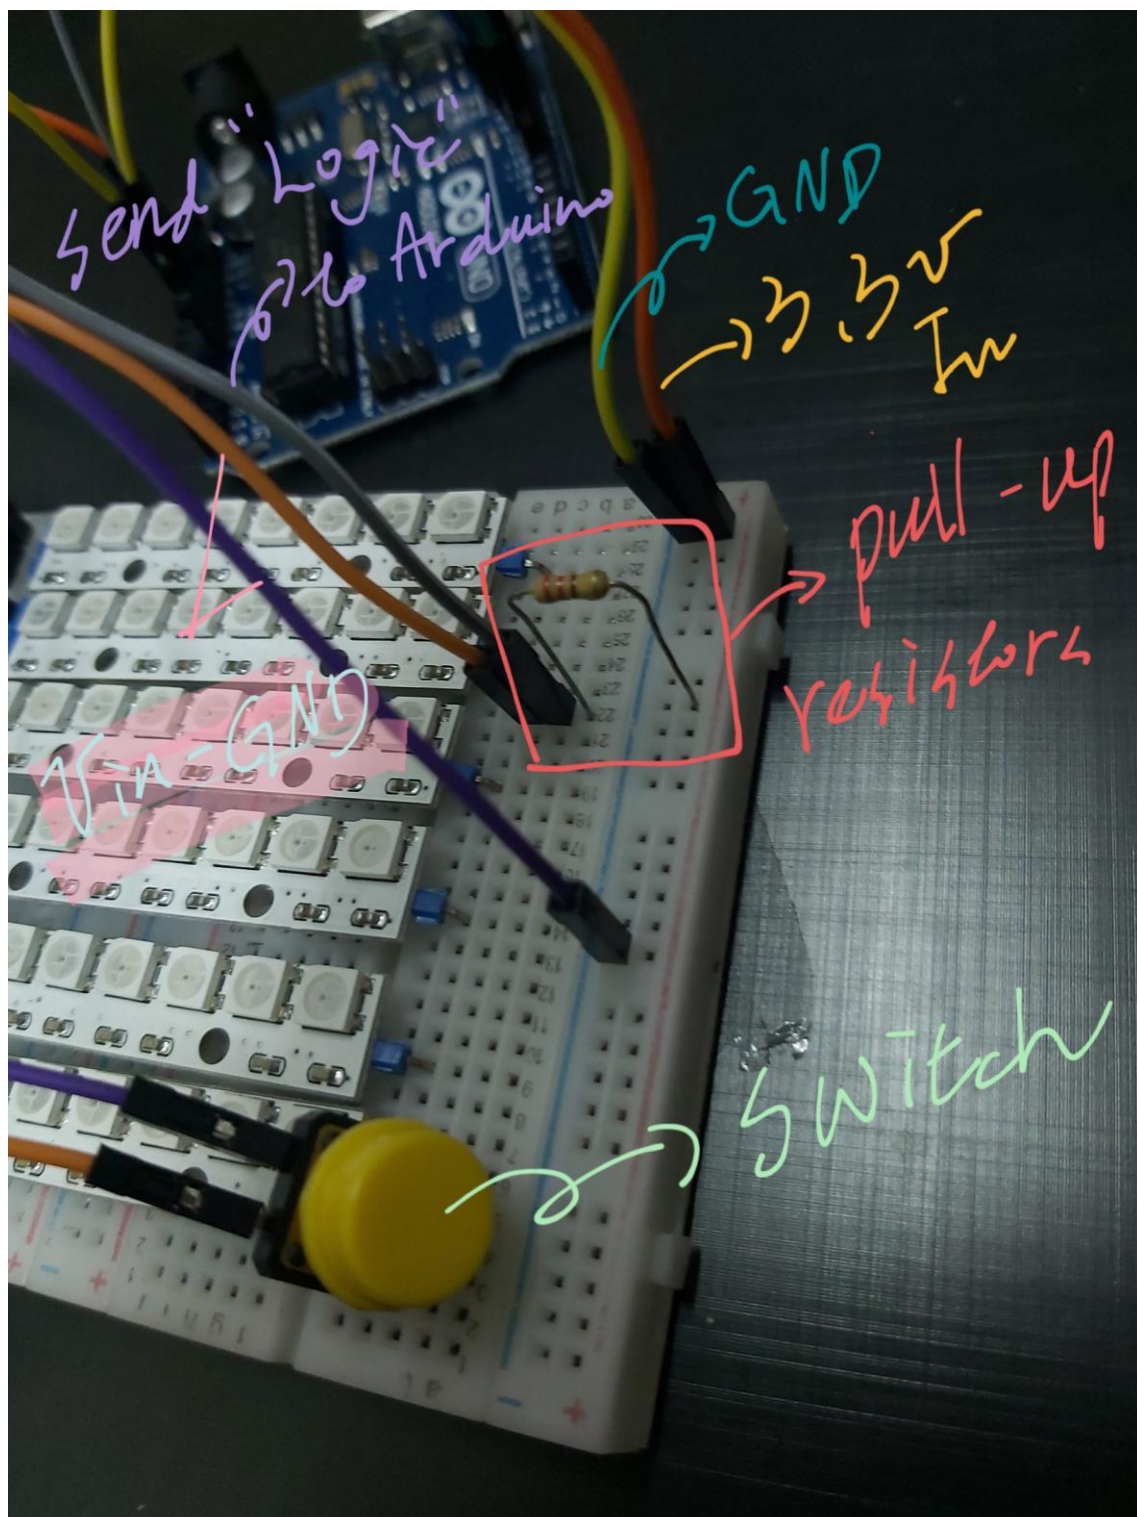 Send "Logic"
to Arduino
GND
3.3v
In
pull-up
resistors
Vin-GND
Switch
UNO
e d c b a